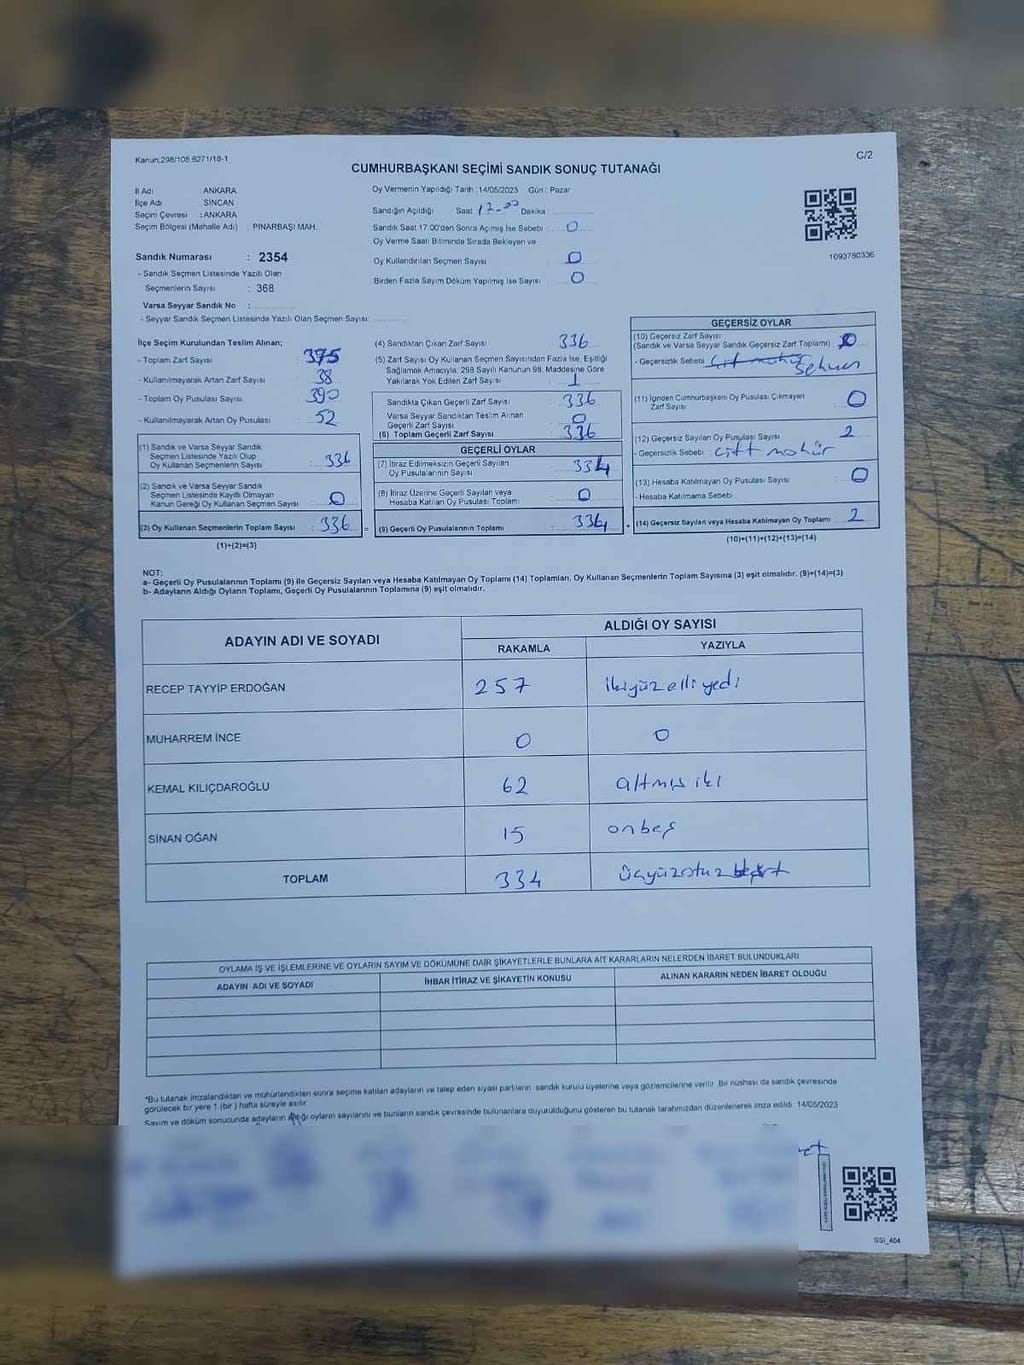 Kanun:298/105,6271/18-1
C/2
CUMHURBAŞKANI SEÇİMİ SANDIK SONUÇ TUTANAĞI
İl Adı ANKARA
İlçe Adı : SİNCAN
Seçim Çevresi : ANKARA
Seçim Bölgesi (Mahalle Adı) : PINARBAŞI MAH.
Sandık Numarası : 2354
- Sandık Seçmen Listesinde Yazılı Olan
Seçmenlerin Sayısı : 368
Varsa Seyyar Sandık No :
- Seyyar Sandık Seçmen Listesinde Yazılı Olan Seçmen Sayısı:
Oy Vermenin Yapıldığı Tarih : 14/05/2023 Gün : Pazar
Sandığın Açıldığı Saat 17.00 Dakika
Sandık Saat 17.00'den Sonra Açılmış İse Sebebi : 0
Oy Verme Saati Bitiminde Sırada Bekleyen ve
Oy Kullandırılan Seçmen Sayısı 0
Birden Fazla Sayım Döküm Yapılmış İse Sayısı : 0
1093780336
İlçe Seçim Kurulundan Teslim Alınan;
- Toplam Zarf Sayısı 375
- Kullanılmayarak Artan Zarf Sayısı 38
- Toplam Oy Pusulası Sayısı 390
- Kullanılmayarak Artan Oy Pusulası : 52
(1) Sandık ve Varsa Seyyar Sandık
Seçmen Listesinde Yazılı Olup
Oy Kullanan Seçmenlerin Sayısı : 336
(2) Sandık ve Varsa Seyyar Sandık
Seçmen Listesinde Kayıtlı Olmayan
Kanun Gereği Oy Kullanan Seçmen Sayısı : 0
(3) Oy Kullanan Seçmenlerin Toplam Sayısı : 336 =
(1)+(2)=(3)
(4) Sandıktan Çıkan Zarf Sayısı 336
(5) Zarf Sayısı Oy Kullanan Seçmen Sayısından Fazla İse, Eşitliği
Sağlamak Amacıyla, 298 Sayılı Kanunun 98. Maddesine Göre
Yakılarak Yok Edilen Zarf Sayısı : 1
Sandıkta Çıkan Geçerli Zarf Sayısı : 336
Varsa Seyyar Sandıktan Teslim Alınan
Geçerli Zarf Sayısı 0
(6) Toplam Geçerli Zarf Sayısı 336
GEÇERLİ OYLAR
(7) İtiraz Edilmeksizin Geçerli Sayılan
Oy Pusulalarının Sayısı 334
(8) İtiraz Üzerine Geçerli Sayılan veya
Hesaba Katılan Oy Pusulası Toplamı : 0
(9) Geçerli Oy Pusulalarının Toplamı : 334 +
GEÇERSİZ OYLAR
(10) Geçersiz Zarf Sayısı
(Sandık ve Varsa Seyyar Sandık Geçersiz Zarf Toplamı) : 0
- Geçersizlik Sebebi
(11) İçinden Cumhurbaşkanı Oy Pusulası Çıkmayan
Zarf Sayısı 0
(12) Geçersiz Sayılan Oy Pusulası Sayısı 2
- Geçersizlik Sebebi : çift mühür
(13) Hesaba Katılmayan Oy Pusulası Sayısı : 0
- Hesaba Katılmama Sebebi :
(14) Geçersiz Sayılan veya Hesaba Katılmayan Oy Toplamı : 2
(10)+(11)+(12)+(13)=(14)
NOT:
a- Geçerli Oy Pusulalarının Toplamı (9) ile Geçersiz Sayılan veya Hesaba Katılmayan Oy Toplamı (14) Toplamları, Oy Kullanan Seçmenlerin Toplam Sayısına (3) eşit olmalıdır. (9)+(14)=(3)
b- Adayların Aldığı Oyların Toplamı, Geçerli Oy Pusulalarının Toplamına (9) eşit olmalıdır.
ADAYIN ADI VE SOYADI ALDIĞI OY SAYISI
RAKAMLA YAZIYLA
RECEP TAYYİP ERDOĞAN 257 ikiyüzelliyedi
MUHARREM İNCE 0 0
KEMAL KILIÇDAROĞLU 62 altmış iki
SİNAN OĞAN 15 onbeş
TOPLAM 334 üçyüzotuz
OYLAMA İŞ VE İŞLEMLERİNE VE OYLARIN SAYIM VE DÖKÜMÜNE DAİR ŞİKAYETLERLE BUNLARA AİT KARARLARIN NELERDEN İBARET BULUNDUKLARI
ADAYIN ADI VE SOYADI İHBAR İTİRAZ VE ŞİKAYETİN KONUSU ALINAN KARARIN NEDEN İBARET OLDUĞU
*Bu tutanak imzalandıktan ve mühürlendikten sonra seçime katılan adayların ve talep eden siyasi partilerin sandık kurulu üyelerine veya gözlemcilerine verilir. Bir nüshası da sandık çevresinde
görülecek bir yere 1 (bir) hafta süreyle asılır.
Sayım ve döküm sonucunda adayların aldığı oyların sayılarını ve bunların sandık çevresinde bulunanlara duyurulduğunu gösteren bu tutanak tarafımızdan düzenlenerek imza edildi. 14/05/2023
SSI_404